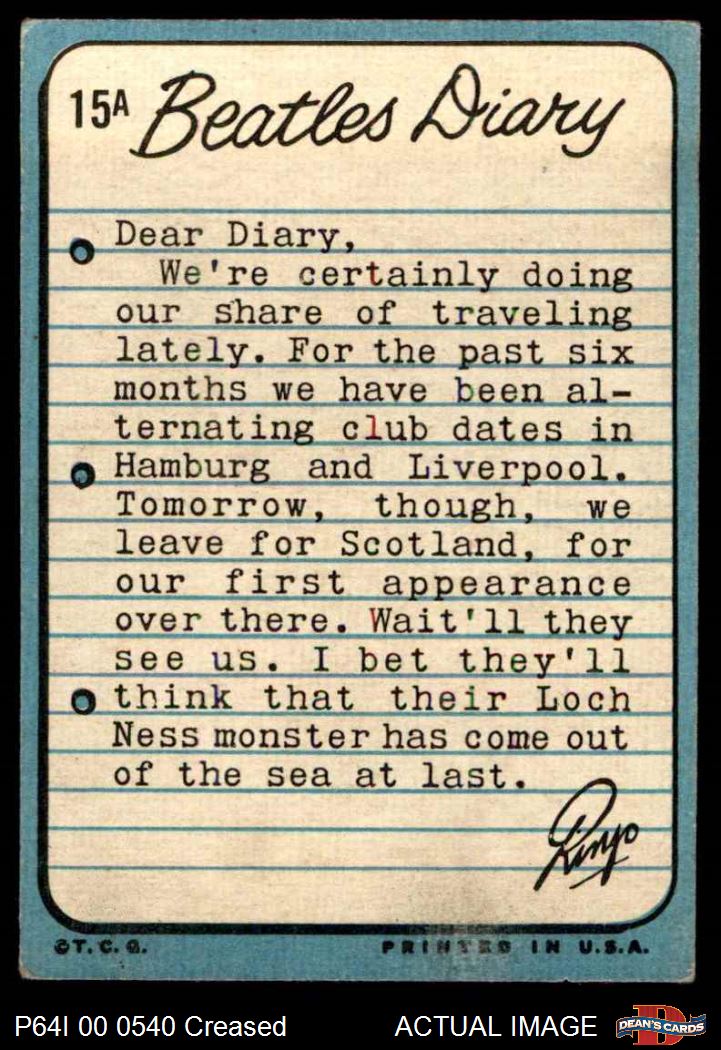 15A Beatles Diary
Dear Diary,
We're certainly doing
our share of traveling
lately. For the past six
months we have been al-
ternating club dates in
Hamburg and Liverpool.
Tomorrow, though, we
leave for Scotland, for
our first appearance
over there. Wait'll they
see us. I bet they'll
think that their Loch
Ness monster has come out
of the sea at last.
Ringo
©T.C.G. PRINTED IN U.S.A.
P64I 00 0540 Creased ACTUAL IMAGE DEAN'S CARDS